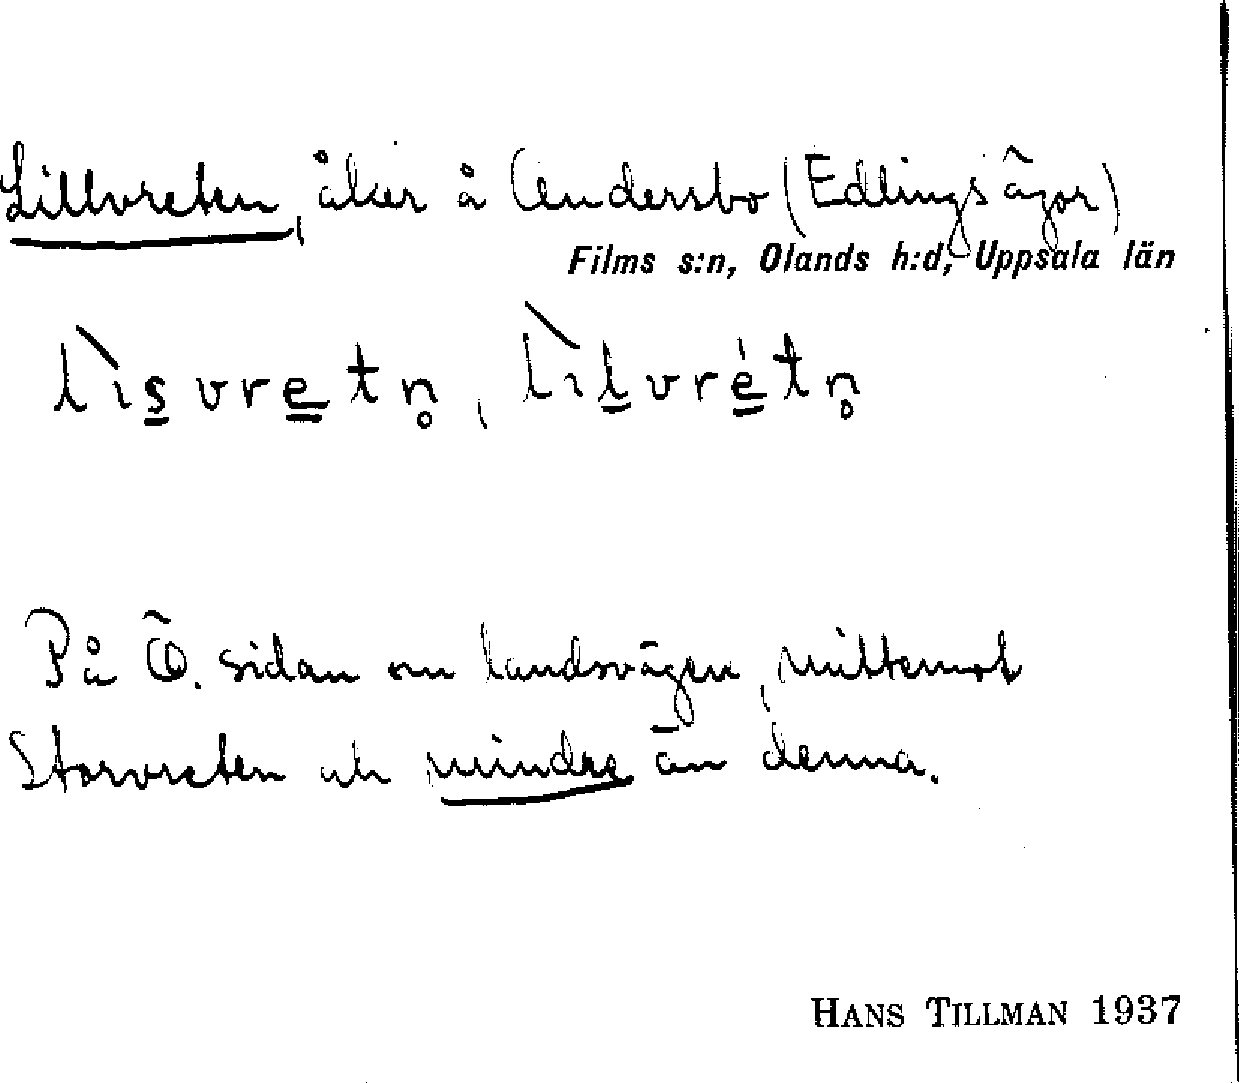 Lillvreten, åker å Andersbo (Edlings ägor)
Films s:n, Olands h:d, Uppsala län
lìs̲vre̲tn̥, lìl̲vré̲tn̥
På Ö. sidan om landsvägen, mittemot
Storvreten och mindre än denna.
HANS TILLMAN 1937